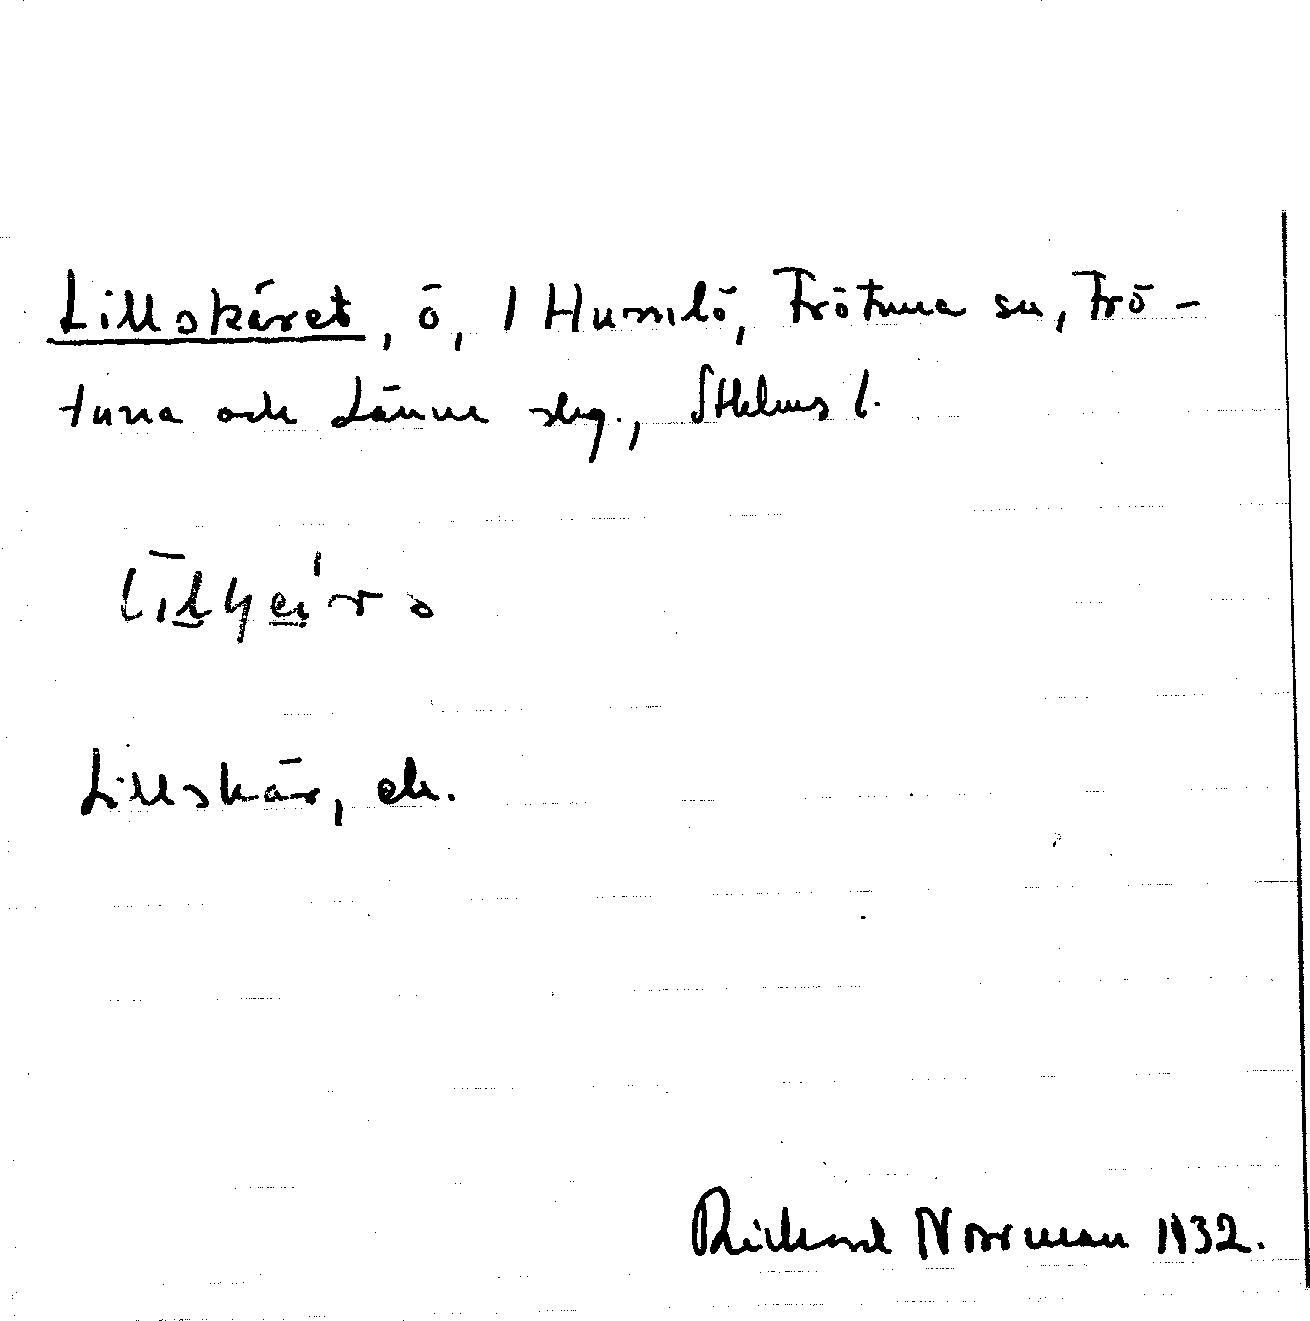 Lillskäret, ö, 1 Humlö, Frötuna sn, Frö-
tuna och Länna skg., Sthlms l.
Lillskär, ek.
Rickard Norrman 1932.